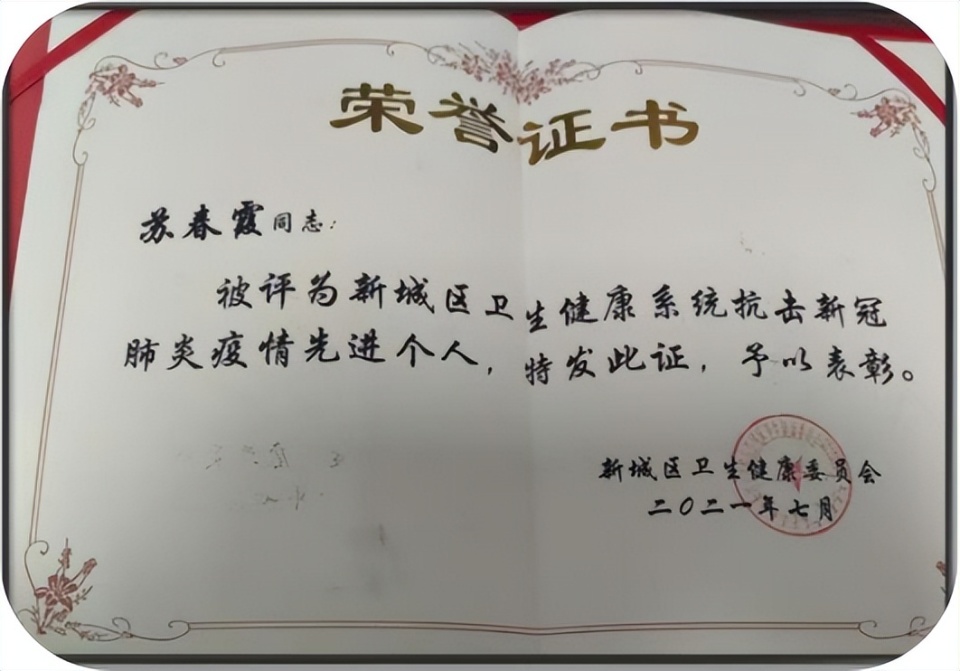 荣誉证书
苏春霞同志：
被评为新城区卫生健康系统抗击新冠
肺炎疫情先进个人，特发此证，予以表彰。
新城区卫生健康委员会
二〇二一年七月